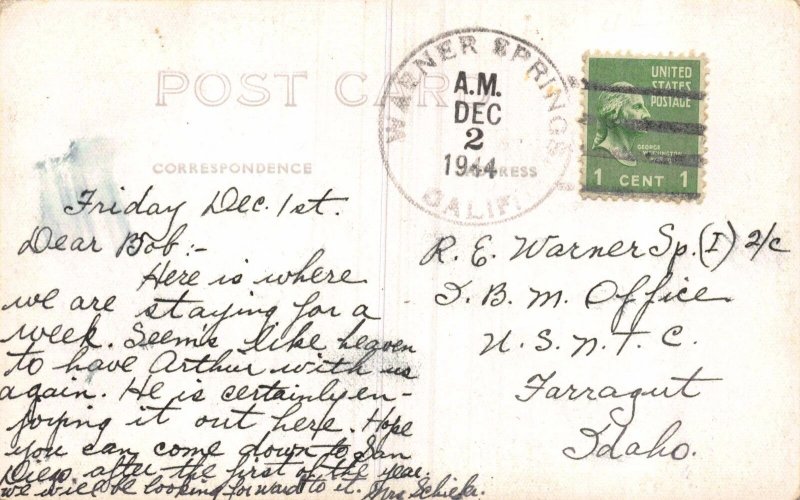 POST CARD
WARNER SPRINGS
A.M.
DEC
2
1944
CALIF.
UNITED
STATES
POSTAGE
GEORGE
WASHINGTON
1 CENT 1
CORRESPONDENCE
ADDRESS
Friday Dec. 1st.
Dear Bob:-
Here is where
we are staying for a
week. Seem's like heaven
to have Arthur with us
again. He is certainly en-
joying it out here. Hope
you can come down to San
Diego after the first of the year.
We will be looking forward to it. Mrs
R. E. Warner Sp. (I) 2/c
I. B. M. Office
U. S. N. T. C.
Farragut
Idaho.